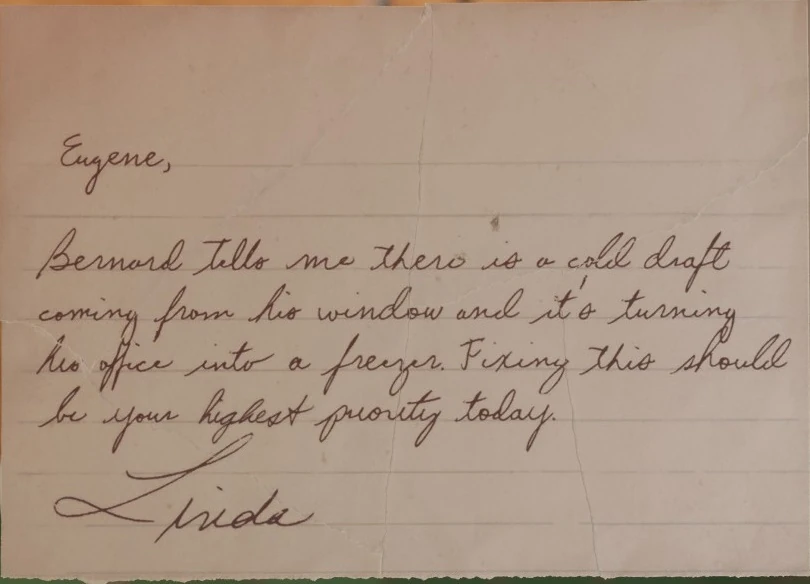 Eugene,
Bernard tells me there is a cold draft
coming from his window and it's turning
his office into a freezer. Fixing this should
be your highest priority today.
Linda